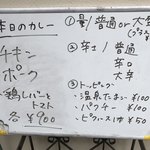 本日のカレー
チキン
ポーク
鶏レバーと
トマト
各¥900
① 量/普通 or 大盛
② 辛さ/普通
中辛
大辛
③ トッピング
・温泉たまご ¥100
・パクチー ¥100
・ピクルス ¥50